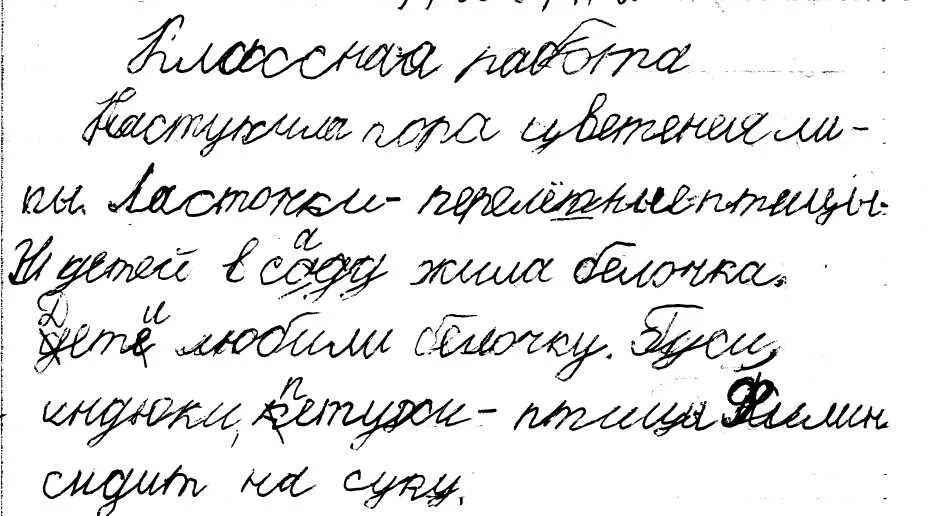 Классная работа
Наступила пора цветения ли-
пы. Ласточки - перелётные птицы.
У детей в саду жила белочка.
Дети любили белочку. Гуси,
индюки, петухи - птицы Филин
сидит на суку.